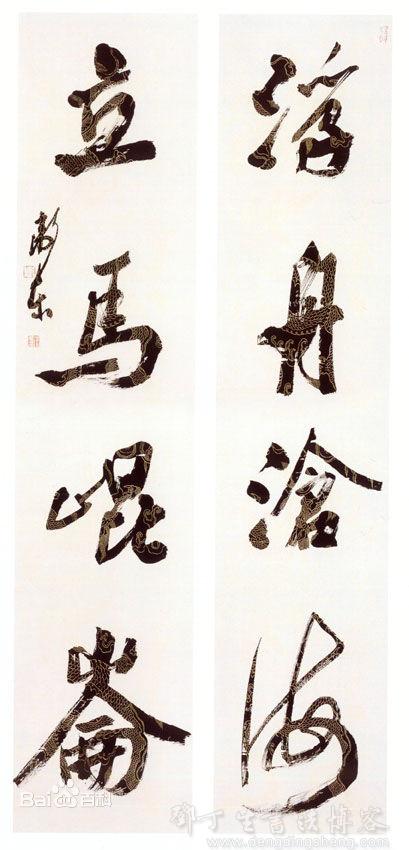 浮舟滄海
立馬崐崙
Bai百科
鄧丁生書法博客
www.dengdingsheng.com